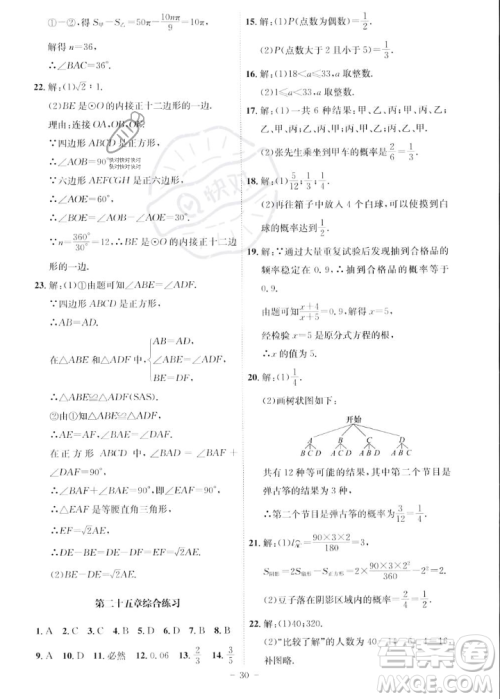 ①-②,得 S甲-S乙=50π-10nπ/9=10π.
解得 n=36.
∴∠BAC=36°.
22. 解:(1)√2∶1.
(2)BE 是⊙O 的内接正十二边形的一边.
理由:连接 OA,OB,OE.
∵四边形 ABCD 是正方形,
∴∠AOB=90°.
∵六边形 AEFCGH 是正六边形,
∴∠AOE=60°.
∴∠BOE=30°.
∵n=360°/30°=12,∴BE 是⊙O 的内接正十二边形的一边.
23. 解:(1)①由题可知∠ABE=∠ADF.
∵四边形 ABCD 是正方形,
∴AB=AD.
在△ABE 和△ADF 中,{AB=AD, ∠ABE=∠ADF, BE=DF,
∴△ABE≌△ADF(SAS).
②由①知△ABE≌△ADF,
∴AE=AF,∠BAE=∠DAF.
在正方形 ABCD 中,∠BAD=∠BAF+∠DAF=90°,
∴∠BAF+∠BAE=90°.∴∠EAF=90°.
∴△EAF 是等腰直角三角形.
∴EF=√2AE.
∴DE-DF=EF=√2AE.
∴DE-BE=√2AE.
(2)BE-DE=√2AE.
第二十五章综合练习
1. A 2. D 3. A 4. D 5. D 6. B 7. B 8. C
9. A 10. D 11. 必然 12. 0.06 13. 2/3 14. 3/5
15. 解:(1)P(点数为偶数)=1/2.
(2)P(点数大于 2 且小于 5)=1/3.
16. 解:(1)18<a≤33,a 取整数.
(2)1≤a≤33,a 取整数.
17. 解:(1)一共 6 种结果:甲、乙、丙;甲、丙、乙;乙、甲、丙;乙、丙、甲;丙、甲、乙;丙、乙、甲.
(2)张先生乘坐到甲车的概率是2/6=1/3.
18. 解:(1)5/12;1/3.
(2)再往箱子中放入 4 个白球,可以使摸到白球的概率达到1/2.
19. 解:∵通过大量重复试验后发现抽到合格品的频率稳定在 0.9,∴抽到合格品的概率等于 0.9.
由题意可知(x+4)/(x+5)=0.9.
经检验 x=5 是原分式方程的根.
∴x 的值为 5.
20. 解:(1)1/4.
(2)画树状图如下:
开始
A B C D
B C D A C D A B D A B C
共有 12 种等可能的结果,其中第二个节目是弹古筝的结果为 3 种,
∴第二个节目是弹古筝的概率为3/12=1/4.
21. 解:(1)l=(90×3×2)/180=3.
S阴影=S扇形-S正方形=(90×3×3²)/360×2-2²=2.
22. 解:(1)40;320.
补图略.
30
快对
快对快对快对